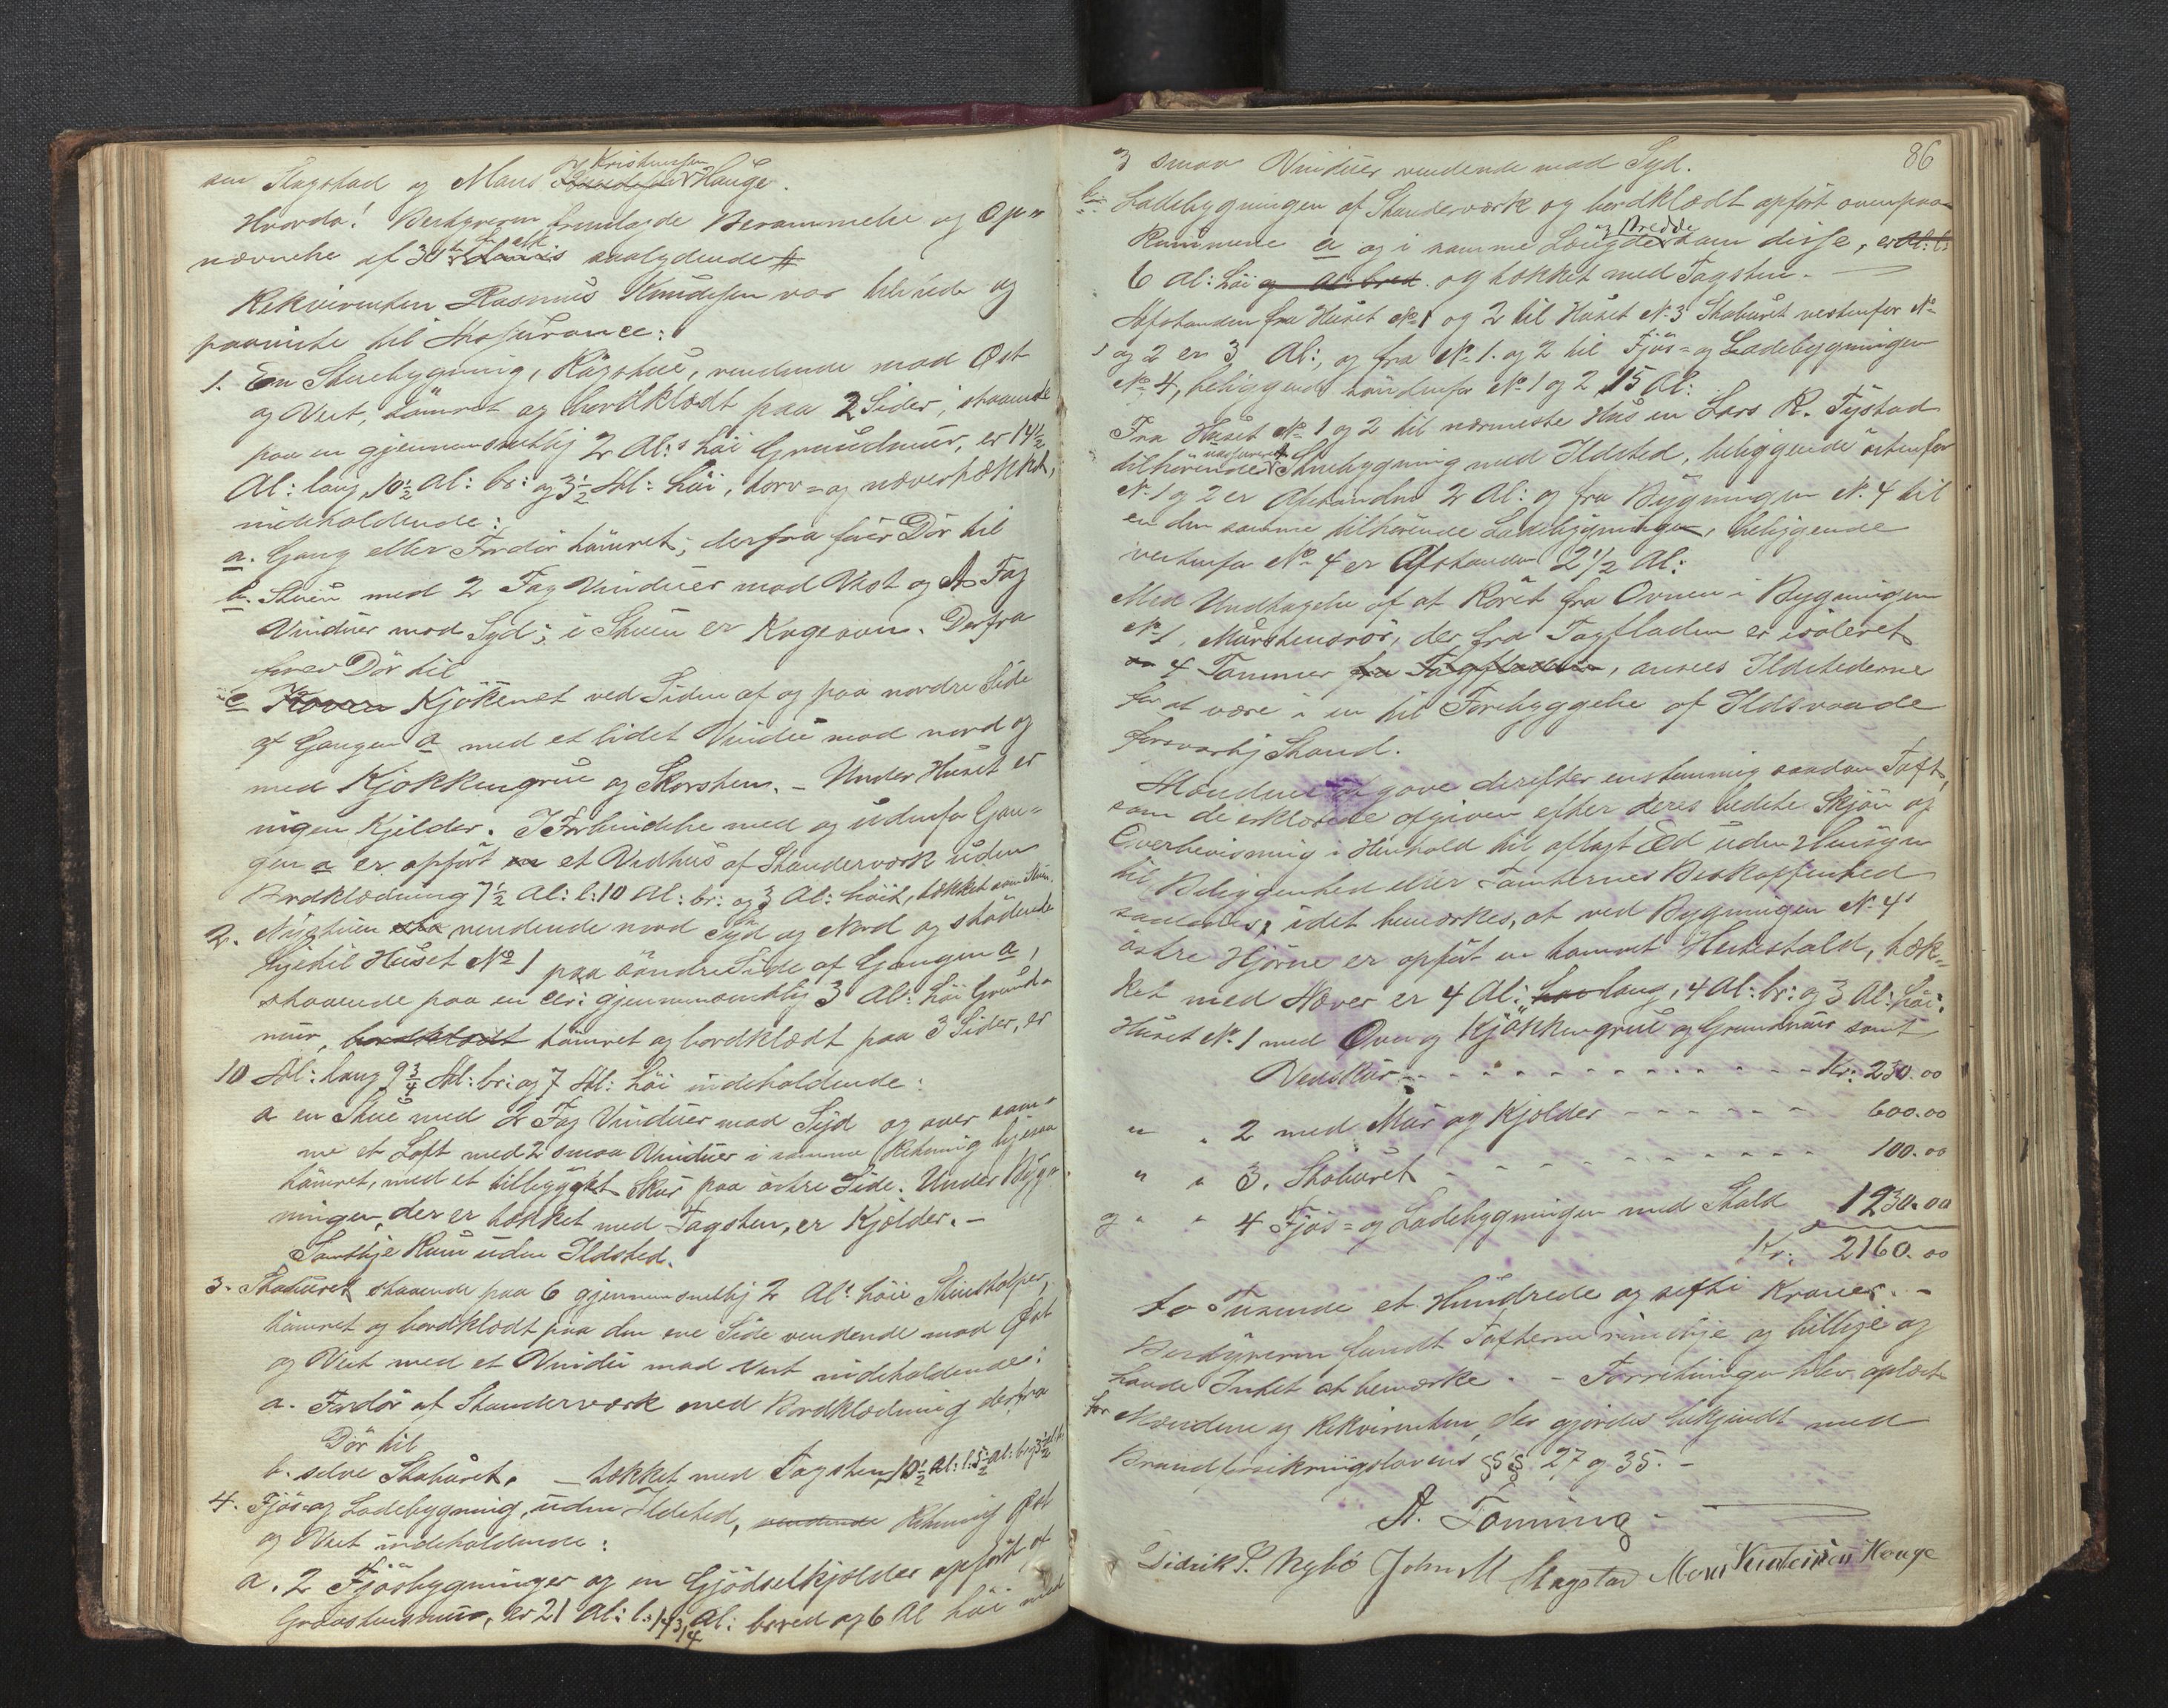 sen Slagstad og Mons Kristensen Hauge.
Hvorda! Bestyreren fremlagde Berammelse og Op-
nævnelse af 30te saalydende #
Rekvirenten Rasmus Knudsen var tilstede og
paaviste til Assurance:
1. En Stuebygning, Røgstue, vendende mod Øst
og Vest, tømret og bordklædt paa 2 Sider, staaende
paa en gjennemsnitlig 2 Al:s høi Grundmur, er 14½
Al: lang, 10½ Al: br: og 3½ Al: høi, torv= og nævertækket,
indeholdende:
a. Gang eller Fordør tømret; derfra fører Dør til
b. Stuen med 2 Fag Vinduer mod Vest og 1 Fag
Vinduer mod Syd; i Stuen er Kogeovn. Derfra
fører Dør til
c Kjøkenet ved Siden af og paa nordre Side
af Gangen a med et lidet Vindu mod nord og
med Kjøkkengrue og Skorsten. - Under Huset er
ingen Kjelder. I Forbindelse med og udenfor Gan-
gen a er opført et Vedhus af Standerværk uden
Bordklædning 7½ Al: l: 10 Al: br: og 3 Al: høit, tækket som Stuen.
2. Nystuen vendende mod Syd og Nord og stødende
lige til Huset No 1 paa søndre Side af Gangen a,
staaende paa en circ: gjennemsnitlig 3 Al: høi Grund-
mur, bordklædt tømret og bordklædt paa 3 Sider, er
10 Al: lang 9¾ Al: br: og 7 Al: høi indeholdende:
a en Stue med 2 Fag Vinduer mod Syd og over sam-
me et Loft med 2 smaa Vinduer i samme Retning ligesaa
tømret, med et tilbygget Skur paa østre Side. Under Byg-
ningen, der er tækket med Tagsten, er Kjælder. -
Samtlige Rum uden Ildsted.
3. Stabburet staaende paa 6 gjennemsnitlig 2 Al: høie Stenstolper,
tømret og bordklædt paa den ene Side vendende mod Øst
og Vest med et Vindu mod Vest indeholdende:
a. Fordør af Standerværk med Bordklædning derfra
Dør til
b. selve Stabburet. - tækket med Tagsten, 10½ Al: l: 5½ al: br: 3½
4. Fjøs= og Ladebygning, uden Ildsted, vendende Retning Øst
og Vest indeholdende:
a. 2 Fjøsbygninger og en Gjødselkjælder opført af
Graastensmur, er 21 Al: l: 14¾ Al: bred og 6 Al høi med
86
3 smaa Vinduer vendende mod Syd.
b. Ladebygningen af Standerværk og bordklædt opført ovenpaa
Rummene a og i samme Længde og Bredde som disse, er Al: l:
6 Al: høi og Al: bred. og tækket med Tagsten. -
Afstanden fra Huset No 1 og 2 til Huset No 3 Stabburet vestenfor No
1 og 2 er 3 Al:, og fra No 1. og 2 til Fjøs= og Ladebygningen
No 4, beliggende søndenfor No 1 og 2 15 Al:
Fra Huset No 1 og 2 til nærmeste Hus en Lars R. Tystad
tilhørende uassureret Stuebygning med Ildsted, beliggende østenfor
No 1 og 2 er Afstanden 2 Al: og fra Bygningen No 4 til
en den samme tilhørende Ladebygningen, beliggende
vestenfor No 4 er Afstanden 2½ Al:
Med Undtagelse af at Røret fra Ovnen i Bygningen
No 1, Murstensrør, der fra Tagfladen er isoleret
4 Tommer fra Tagfladen, ansees Ildstederne
for at være i en til Forebyggelse af Ildsvaade
forsvarlig Stand.
Mændene gave derefter enstemmig saadan Taxt,
som de erklærede afgiven efter deres bedste Skjøn og
Overbevisning i Henhold til aflagt Ed uden Hensyn
til Beliggenhed eller Tomternes Beskaffenhed
saaledes, idet bemærkes, at ved Bygningen No 4s
østre Hjørne er opført en tømret Hestestald, tæk-
ket med Næver er 4 Al: lang, 4 Al: br: og 3 Al: høi:
Huset No 1 med Ovn og Kjøkkengrue og Grundmur samt
Vedskur - - - - - - - - - - - - Kr: 230.00
" " 2 med Mur og Kjelder - - - - - - 600.00
" " 3. Stabburet - - - - - - - - - - - 100.00
og " " 4 Fjøs= og Ladebygningen med Stald 1230.00
Kr: 2160.00
to Tusende et Hundrede og sexti Kroner. -
Bestyreren fandt Taxterne rimelige og billige og
havde Intet at bemærke. - Forretningen blev oplæst
for Mændene og Rekvirenten, der gjordes bekjendt med
Brandforsikringslovens §§ 27 og 35. -
A. Tonning
Didrik P. Nybø John M Slagstad Mons Kristensen Houge